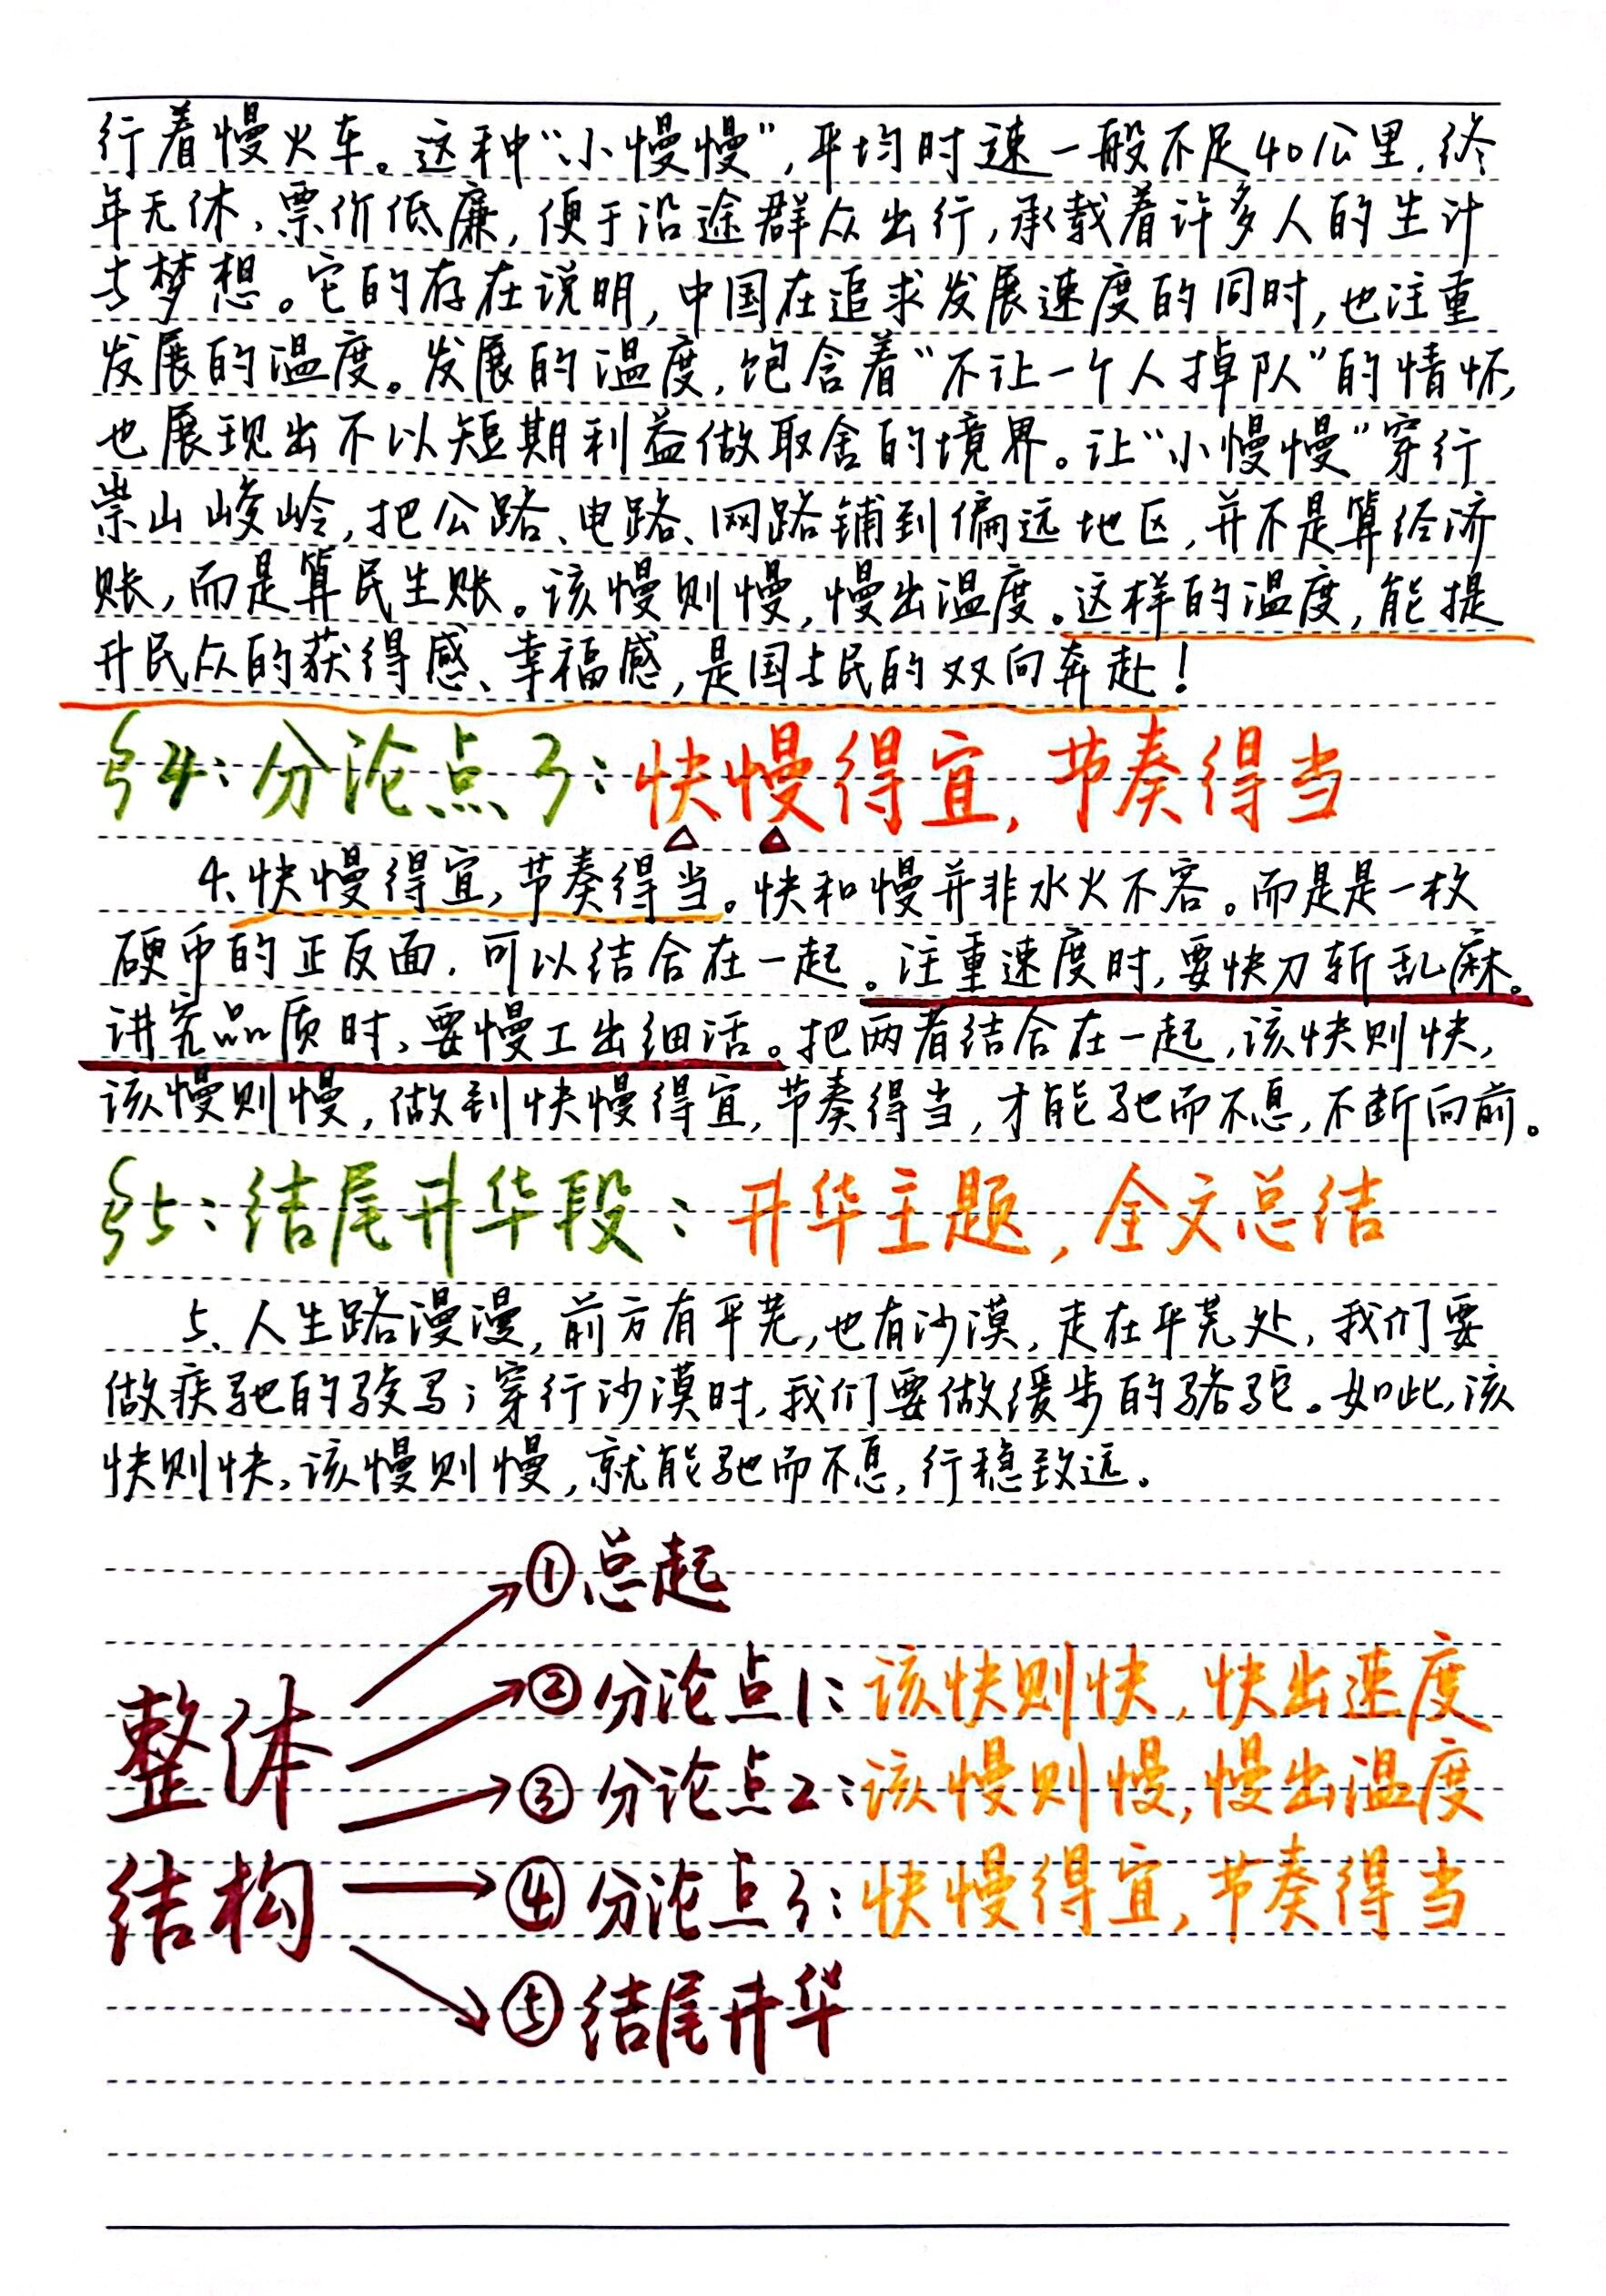 行着慢火车。这种“小慢慢”,平均时速一般不足40公里,终
年无休,票价低廉,便于沿途群众出行,承载着许多人的生计
与梦想。它的存在说明,中国在追求发展速度的同时,也注重
发展的温度。发展的温度,饱含着“不让一个人掉队”的情怀,
也展现出不以短期利益做取舍的境界。让“小慢慢”穿行
崇山峻岭,把公路、电路、网路铺到偏远地区,并不是算经济
账,而是算民生账。该慢则慢,慢出温度。这样的温度,能提
升民众的获得感、幸福感,是国与民的双向奔赴!
§4:分论点3:快慢得宜,节奏得当
4、快慢得宜,节奏得当。快和慢并非水火不容。而是是一枚
硬币的正反面,可以结合在一起。注重速度时,要快刀斩乱麻。
讲究品质时,要慢工出细活。把两着结合在一起,该快则快,
该慢则慢,做到快慢得宜,节奏得当,才能驰而不息,不断向前。
§5:结尾升华段:升华主题,全文总结
5、人生路漫漫,前方有平芜,也有沙漠,走在平芜处,我们要
做疾驰的骏马;穿行沙漠时,我们要做缓步的骆驼。如此,该
快则快,该慢则慢,就能驰而不息,行稳致远。
整体结构
①总起
②分论点1:该快则快,快出速度
③分论点2:该慢则慢,慢出温度
④分论点3:快慢得宜,节奏得当
⑤结尾升华